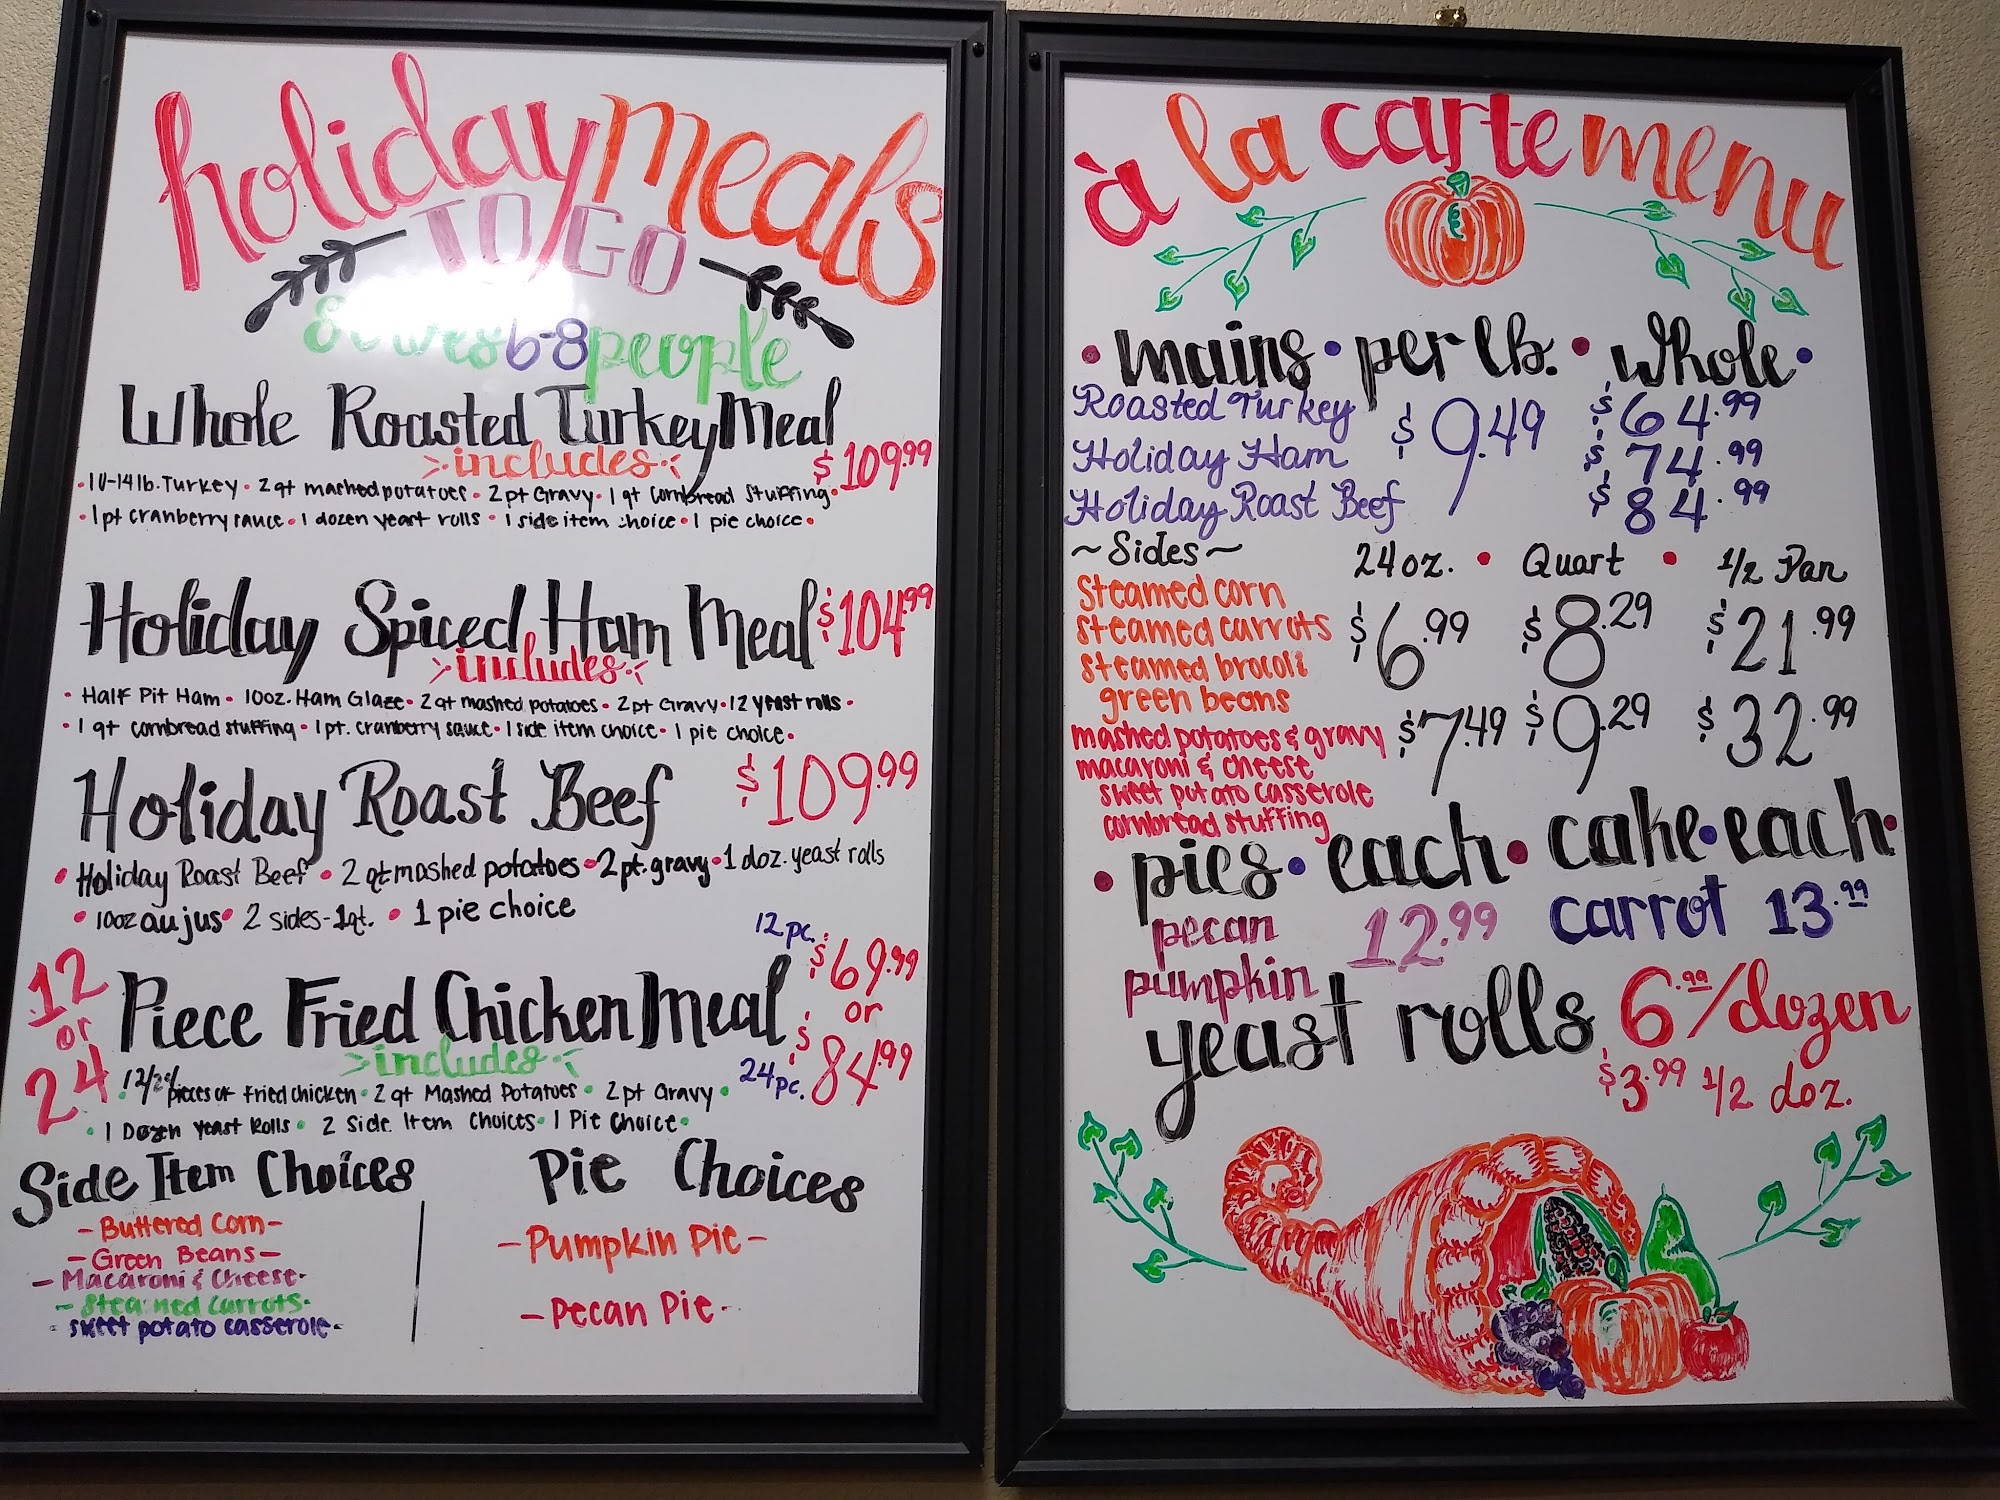 holiday meals
TO GO
Serves 6-8 people
Whole Roasted Turkey Meal
includes
$109.99
• 10-14lb. Turkey • 2 qt mashed potatoes • 2 pt Gravy • 1 qt Cornbread Stuffing •
• 1 pt cranberry sauce • 1 dozen yeast rolls • 1 side item choice • 1 pie choice •
Holiday Spiced Ham Meal $104.99
includes
• Half Pit Ham • 10oz. Ham Glaze • 2 qt mashed potatoes • 2 pt Gravy • 12 yeast rolls •
• 1 qt cornbread stuffing • 1 pt. cranberry sauce • 1 side item choice • 1 pie choice •
Holiday Roast Beef $109.99
• Holiday Roast Beef • 2 qt mashed potatoes • 2 pt. gravy • 1 doz. yeast rolls
• 10oz au jus • 2 sides - 1qt. • 1 pie choice
12 or 24 Piece Fried Chicken Meal
12 pc. $69.99
or
24 pc. $84.99
includes
• 12/24 pieces of fried chicken • 2 qt Mashed Potatoes • 2 pt Gravy •
• 1 Dozen Yeast Rolls • 2 Side Item Choices • 1 Pie Choice •
Side Item Choices
- Buttered Corn -
- Green Beans -
- Macaroni & Cheese -
- Steamed Carrots -
- sweet potato casserole -
Pie Choices
- Pumpkin Pie -
- Pecan Pie -
à la carte menu
• mains • per lb. • whole •
Roasted Turkey $9.49 $64.99
Holiday Ham $74.99
Holiday Roast Beef $84.99
~Sides~ 24oz. • Quart • 1/2 Pan
Steamed corn
steamed carrots $6.99 $8.29 $21.99
steamed brocoli
green beans
mashed potatoes & gravy $7.49 $9.29 $32.99
macaroni & cheese
sweet potato casserole
cornbread stuffing
• pies • each • cake • each •
pecan 12.99 carrot 13.99
pumpkin
yeast rolls 6.99/dozen
$3.99 1/2 doz.